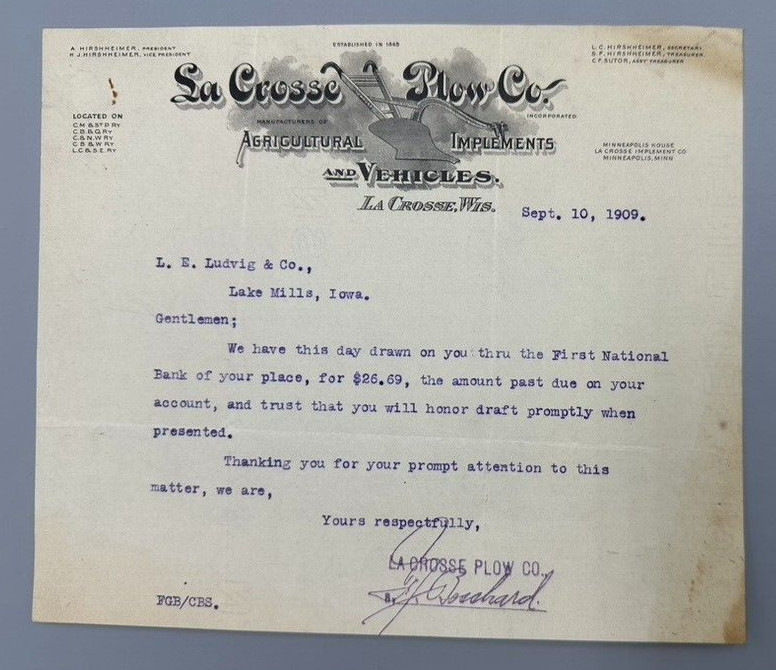 A HIRSHHEIMER, PRESIDENT
H J. HIRSHHEIMER, VICE PRESIDENT
ESTABLISHED IN 1865
L. C. HIRSHHEIMER, SECRETARY.
S. F. HIRSHHEIMER, TREASURER.
C F. SUTOR, ASST TREASURER
La Crosse Plow Co.
INCORPORATED.
LOCATED ON
C.M & ST P RY
C.B. & Q. RY
C. & N.W RY
C B & W RY
L.C & S.E. RY
MANUFACTURERS OF
AGRICULTURAL IMPLEMENTS
AND VEHICLES.
MINNEAPOLIS HOUSE
LA CROSSE IMPLEMENT CO
MINNEAPOLIS, MINN
LA CROSSE, WIS.
Sept. 10, 1909.
L. E. Ludvig & Co.,
Lake Mills, Iowa.
Gentlemen;
We have this day drawn on you thru the First National
Bank of your place, for $26.69, the amount past due on your
account, and trust that you will honor draft promptly when
presented.
Thanking you for your prompt attention to this
matter, we are,
Yours respectfully,
LA CROSSE PLOW CO.,
Bouchard.
FGB/CBS.